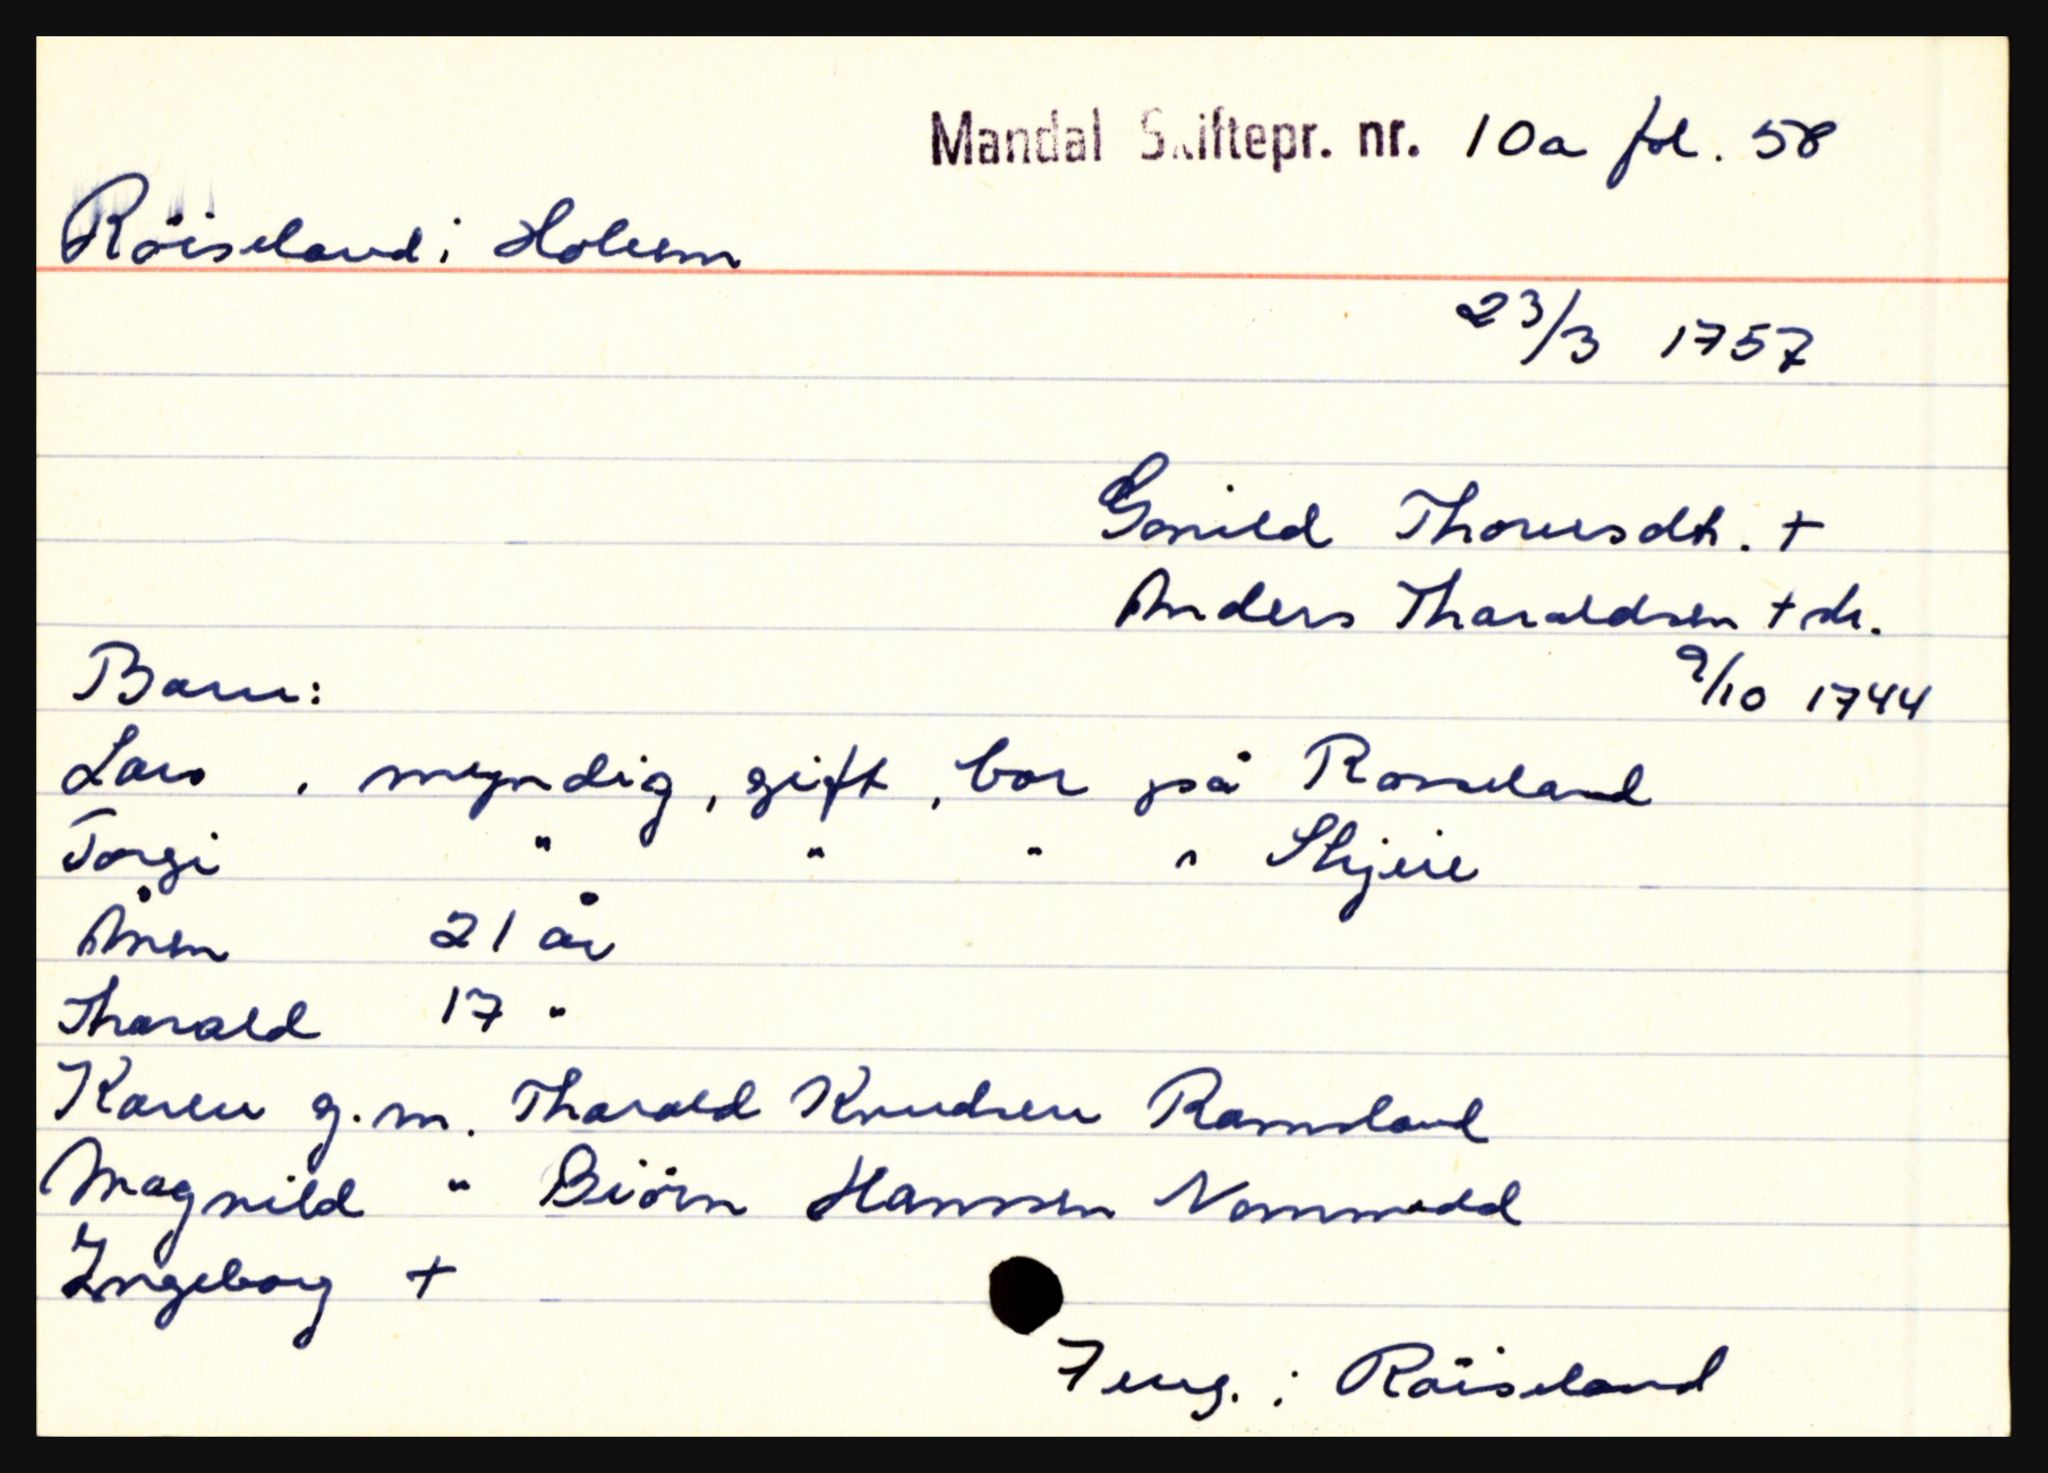 Mandal Skiftepr. nr. 10a fol. 58
Röiseland i Holum
23/3 1757
Gonild Thorersdtr. +
Anders Tharaldsen + sk.
9/10 1744
Barn:
Lars , myndig, gift, bor på Rosseland
Torgi " " " " Skjeie
Ånen 21 år
Tharald 17 "
Karen g.m. Tharald Knudsen Ramsland
Magnild " Biörn Hanssen Nommedal
Ingeborg +
7 eng. i Röiseland